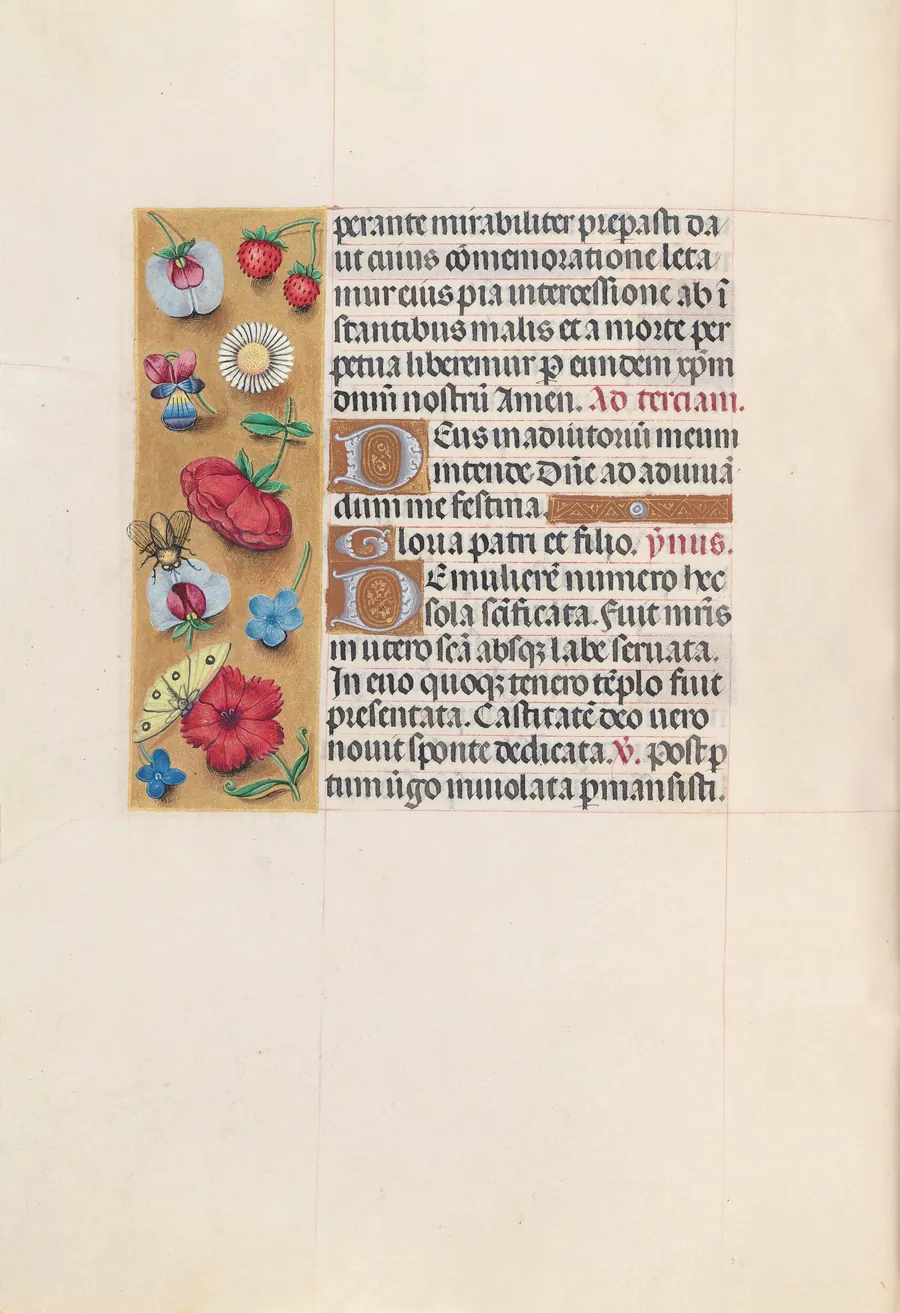 perante mirabiliter prepasti da
ut cuius cōmemoratione leta
mur eius pia intercessione ab ī
stantibus malis et a morte per
petua liberemur ꝑ eundem xp̄m
dnm̄ nostrū Amen. Ad terciam.
Deus in adiutoriū meum
intende Dn̄e ad adiuuā
dum me festina.
Gloria patri et filio. ẏmus.
De mulierē numero hec
sola sc̄ificata. Fuit mr̄is
in utero scā absqꝫ labe seruata.
In euo quoqꝫ tenero tēplo fuit
presentata. Castitatē deo uero
nouit sponte dedicata. V̄. Post p
tum ūgo inuiolata ꝑmansisti.